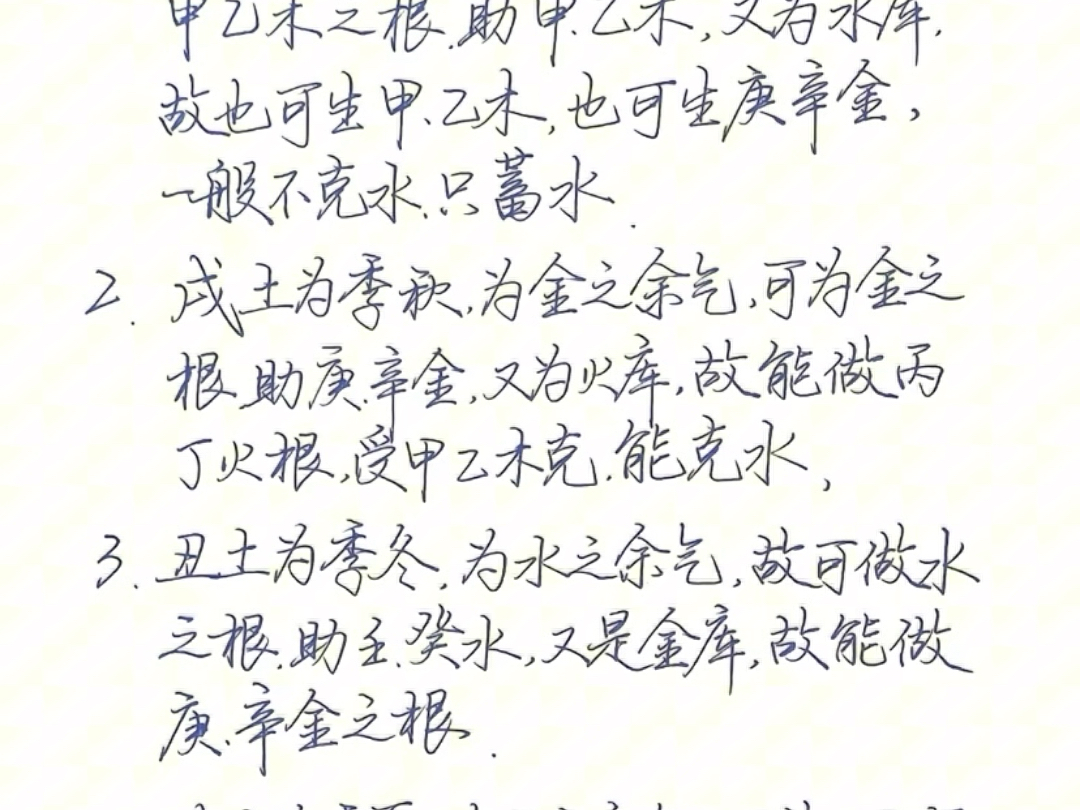 甲乙木之根.助甲.乙木,又为水库.
故也可生甲、乙木,也可生庚辛金,
一般不克水.只蓄水.
2. 戌土为季秋,为金之余气,可为金之
根.助庚.辛金,又为火库,故能做丙
丁火根,受甲乙木克.能克水,
3. 丑土为季冬,为水之余气,故可做水
之根.助壬.癸水,又是金库,故能做
庚.辛金之根.